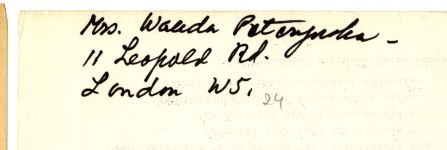 Mrs. Wanda
11 Leopold Rd.
London W5.
24